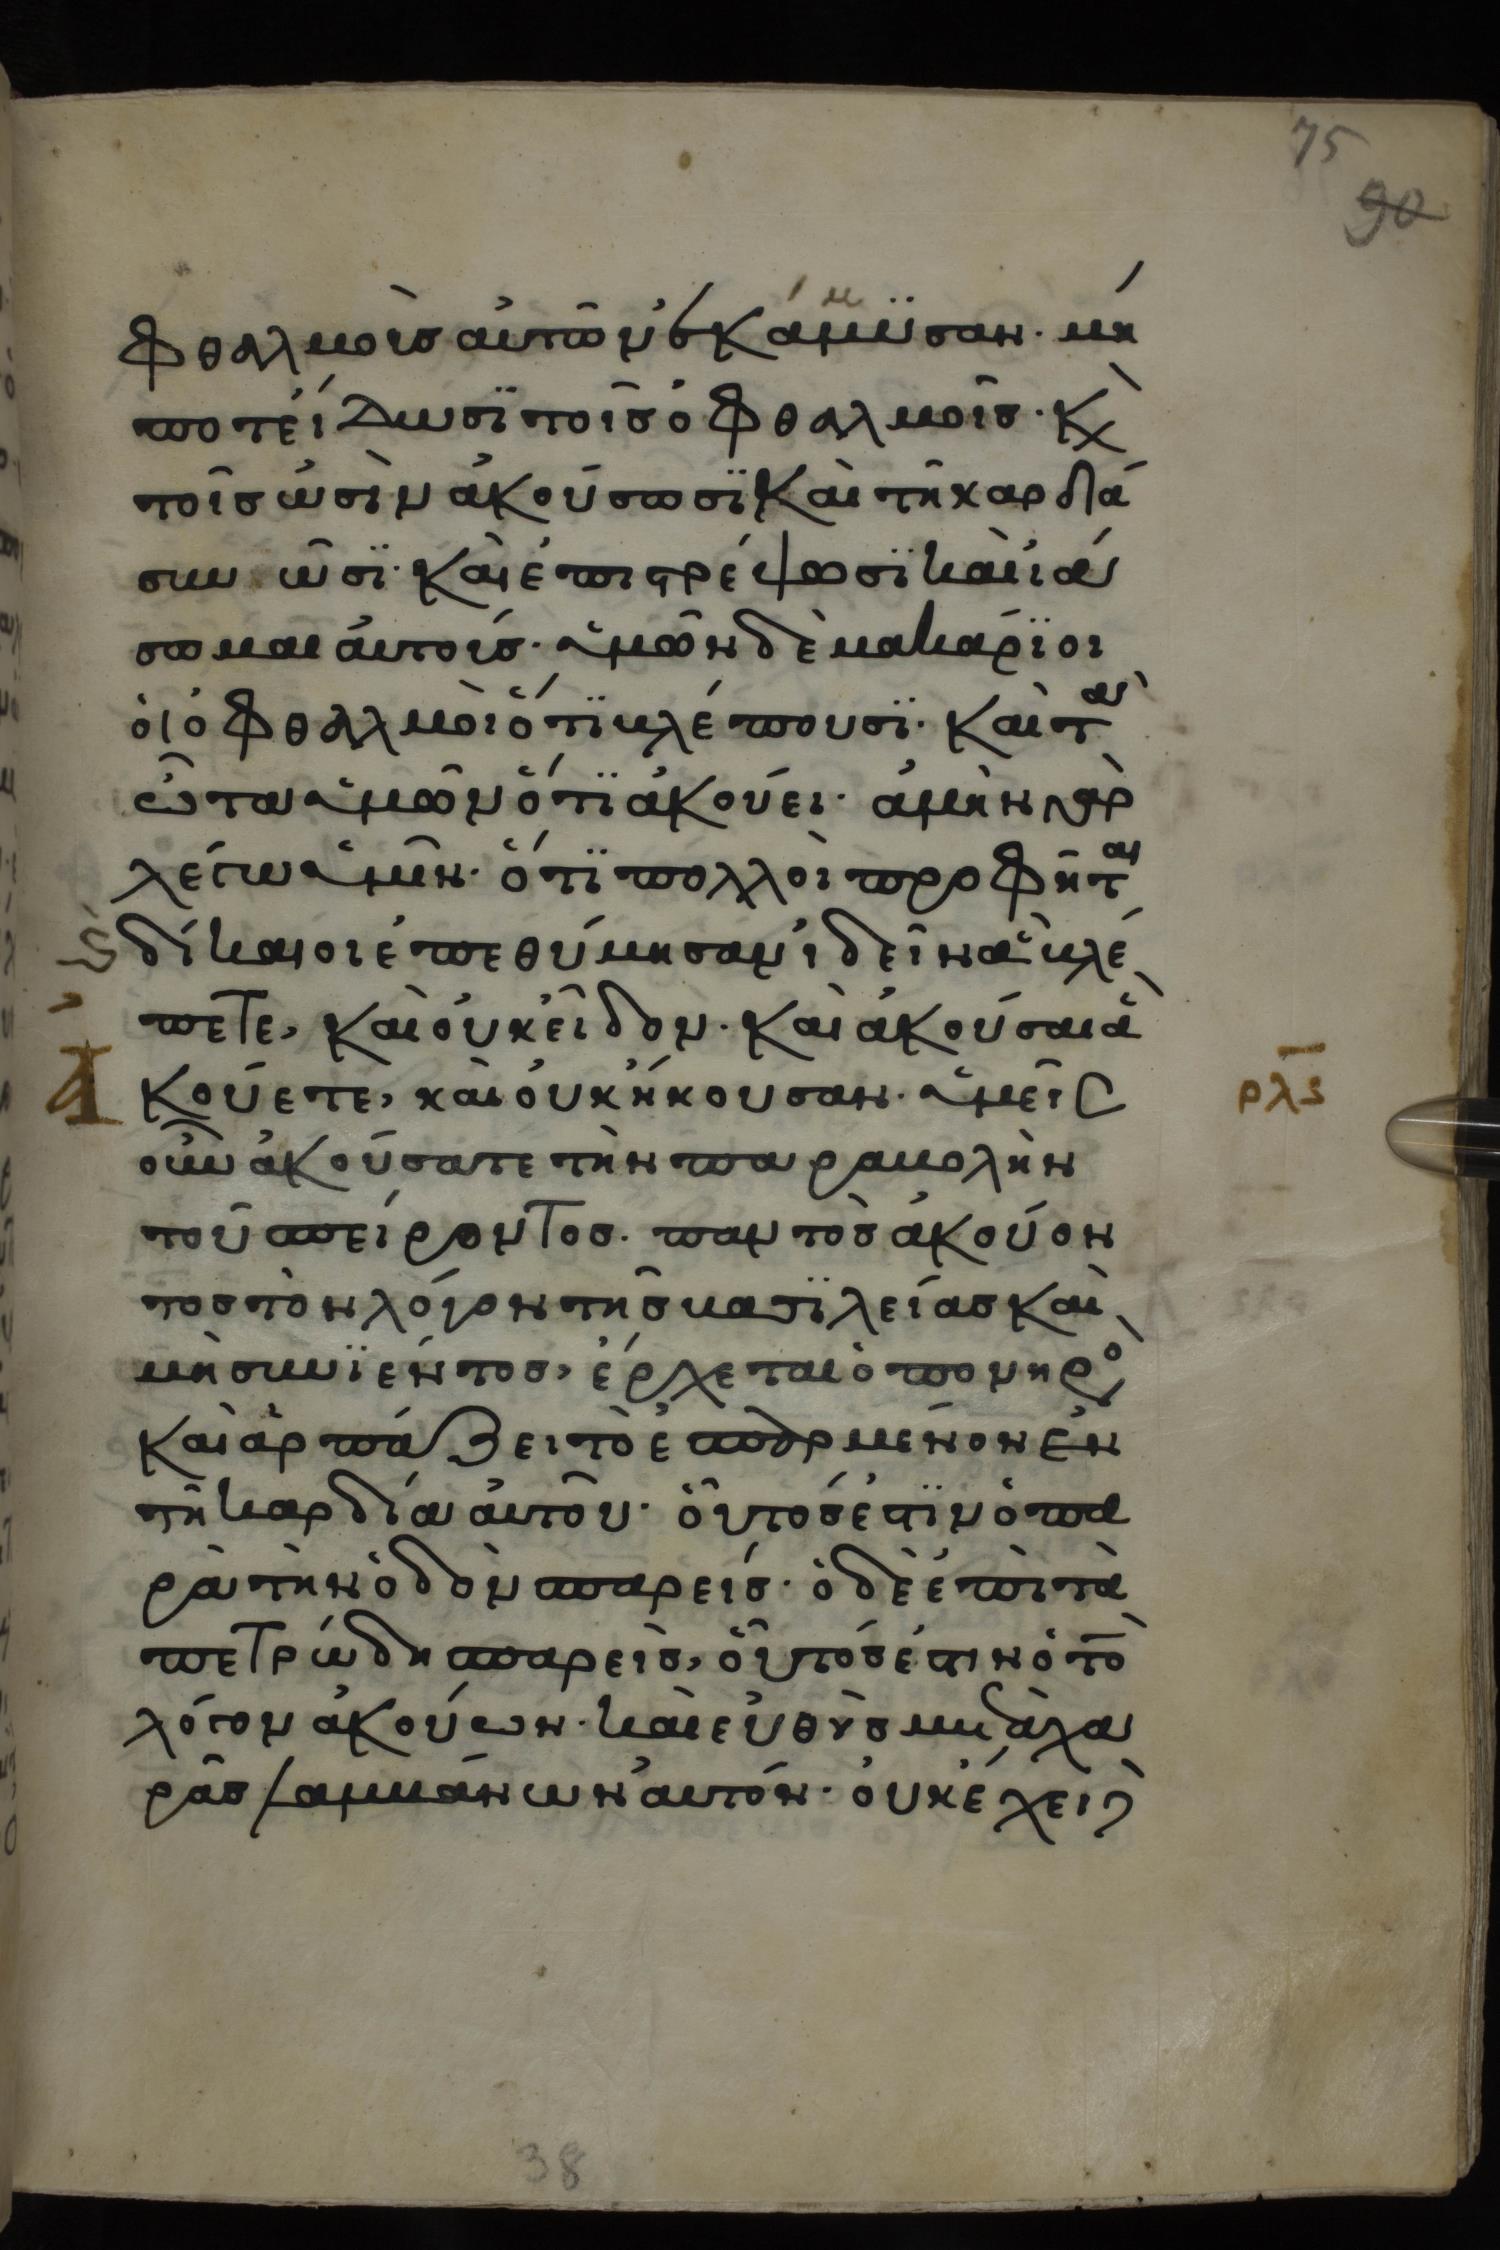 75
90
φθαλμοὺσ αὐτῶν ἐκάμμυσαν· μή
ποτε ἴδωσϊ τοῖσ ὀφθαλμοῖσ· κ(αὶ)
τοῖσ ὠσὶν ἀκούσωσϊ καὶ τῆ καρδία
συνῶσϊ· καὶ ἐπιστρέψωσϊ καὶ ἰά
σωμαι αὐτούσ· ὑμῶν δὲ μακάρϊοι
ὁι ὀφθαλμοὶ ὅτϊ βλέπουσϊ· καὶ τὰ
ὦτα ὑμῶν ὅτϊ ἀκούει· ἀμὴν γὰρ
λέγω ὑμῖν· ὅτϊ πολλοὶ προφῆται
καὶ δίκαιοι ἐπεθύμησαν ἰδεῖν ἃ βλέ
πετε, καὶ οὐκ εἶδον· καὶ ἀκοῦσαι ἃ
ἀκούετε, καὶ οὐκ ἤκουσαν· ὑμεῖς ρλς
οὖν ἀκούσατε τὴν παραβολὴν
τοῦ σπείροντοσ· παντὸσ ἀκούον
τοσ τὸν λόγον τῆσ βασϊλείασ καὶ
μὴ συνϊέντοσ, ἔρχεται ὁ πονηρὸσ
καὶ ἁρπάζει τὸ ἐσπαρμένον ἐν
τῆ καρδία αὐτοῦ· οὗτόσ ἐστϊν ὁ πα
ρὰ τὴν ὁδὸν σπαρείσ· ὁ δὲ ἐπὶ τὰ
πετρώδη σπαρεὶσ, οὗτόσ ἐστιν ὁ τὸ
λόγον ἀκούων· καὶ εὐθὺσ μετὰ χα
ρᾶσ λαμβάνων αὐτόν· οὐκ ἔχει
38